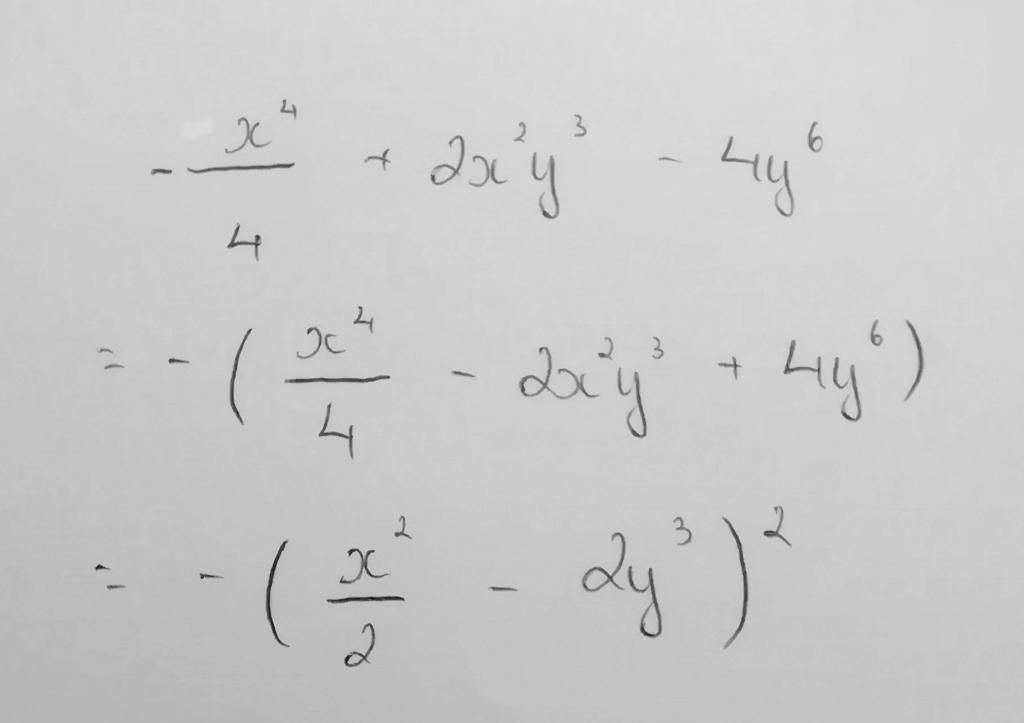 -x⁴/4 + 2x²y³ - 4y⁶
= -(x⁴/4 - 2x²y³ + 4y⁶)
= -(x²/2 - 2y³)²